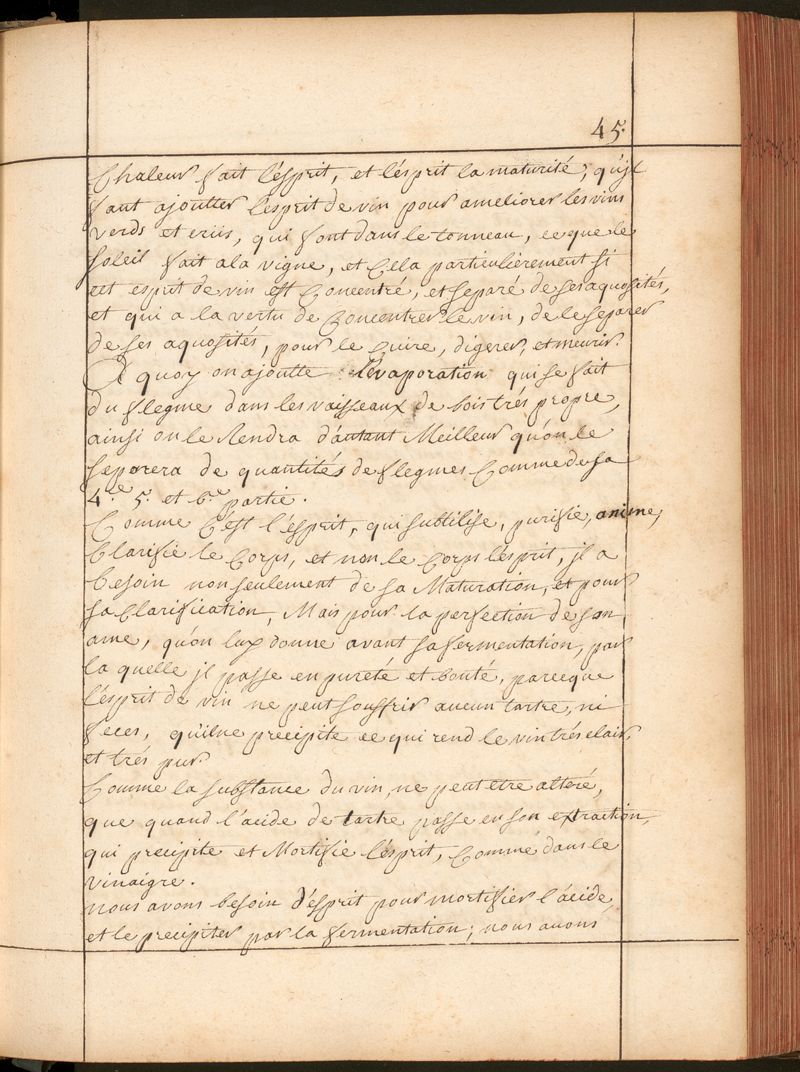 45.
Chaleur fait l'ésprit, et l'ésprit la maturité; qu'jl
faut ajoutter l'esprit de vin pour ameliorer les vins
verds et crüs, qui font dans le tonneau, ce que le
soleil fait a la vigne, et Cela particulièrement si
cet esprit de vin est Concentré, et separé de ses aquosités,
et qui a la vertu de Concentrer le vin, de le separer
de ses aquosités, pour le Cuire, digerer, et meurir.
A quoy on ajoutte l'évaporation qui se fait
du flegme dans les vaisseaux de bois trés propre,
ainsi on le Rendra d'autant Meilleur qu'on le
separera de quantités de flegmes Comme de sa
4.e 5.e et 6.e partie.
Comme C'est l'ésprit, qui subtilise, purifie, anime,
Clarifie le Corps, et non le Corps l'esprit, jl a
besoin non seulement de sa Maturation, et pour
sa Clarification, Mais pour la perfection de son
ame, qu'on luy donne avant sa fermentation, par
la quelle jl passe en pureté et bonté, parceque
l'ésprit de vin ne peut souffrir aucun tartre, ni
feces, qu'il ne precipite ce qui rend le vin trés clair,
et trés pur
Comme la substance du vin, ne peut etre alteré,
que quand l'acide de tartre passe en son extraction,
qui precipite et Mortifie l'ésprit, Comme dans le
vinaigre.
nous avons besoin d'ésprit pour mortifier l'acide,
et le precipiter par la fermentation; nous avons